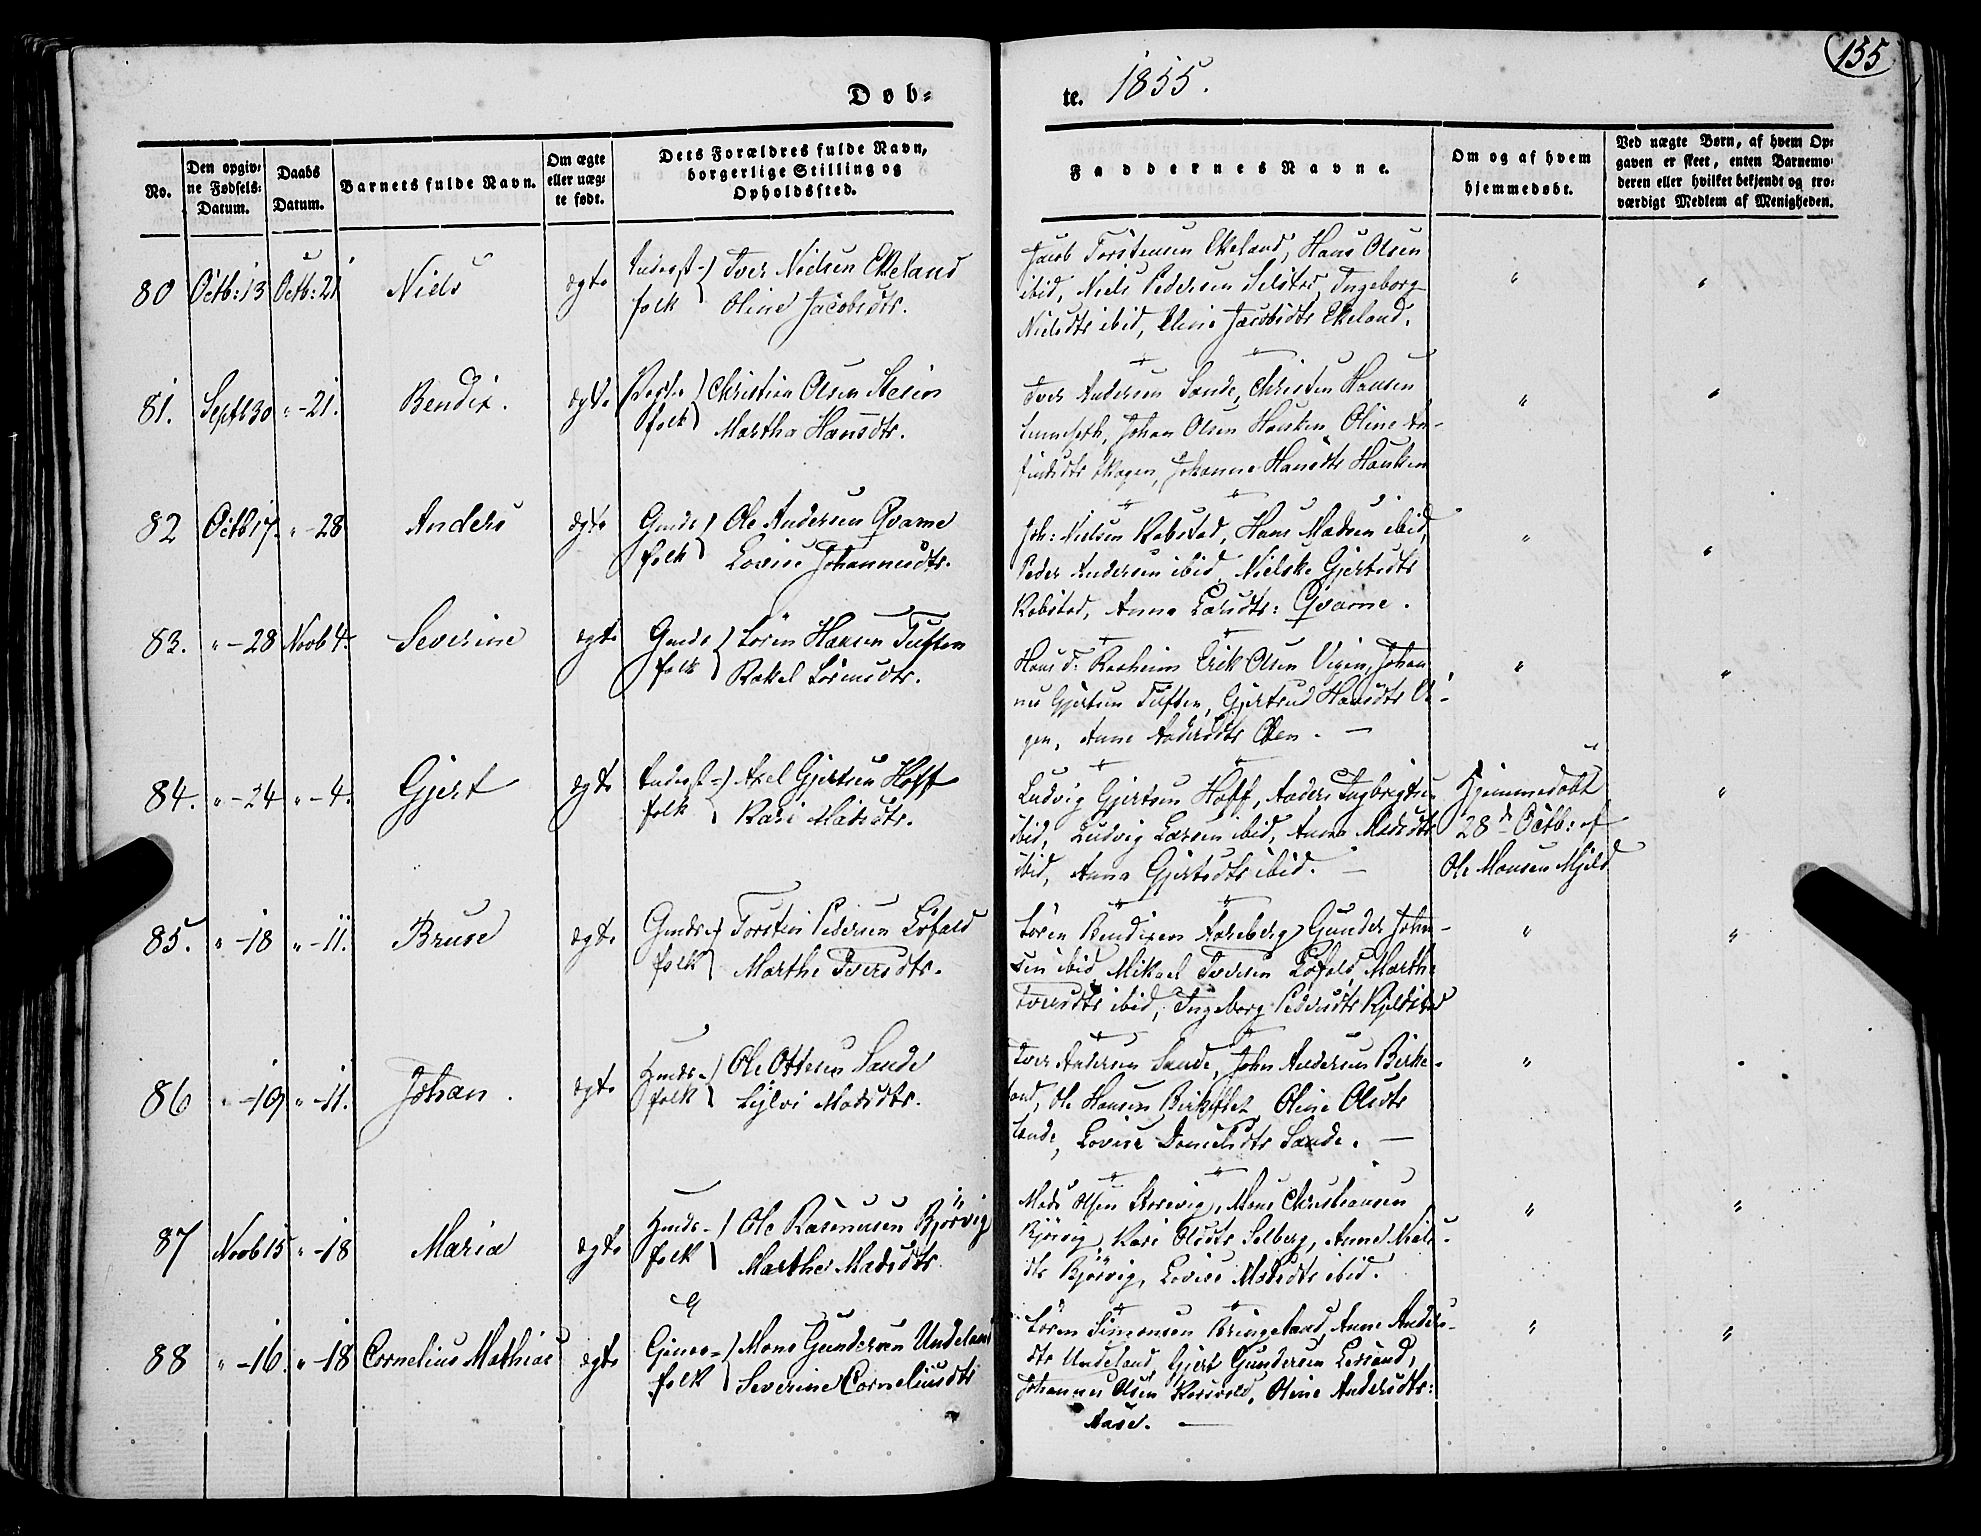 155
Døb=
te. 1855.
No.
Den opgiv=
ne Fødsels=
Datum.
Daabs
Datum.
Barnets fulde Navn.
Om ægte
eller uæg=
te født.
Dets Forældres fulde Navn,
borgerlige Stilling og
Opholdssted.
Faddernes Navne.
Om og af hvem
hjemmedøbt.
Ved uægte Børn, af hvem Op=
gaven er skeet, enten Barnemo=
deren eller hvilket bekjendt og tro=
værdigt Medlem af Menigheden.
80 Octb: 13 Octb: 21 Niels ægte Inderst- Iver Nielsen Ekeland
folk Oline Jacobsdtr.
Jacob Torstensen Ekeland, Hans Olsen
ibid, Niels Pedersen Selstad, Ingeborg
Nielsdtr ibid, Oline Jacobsdtr Ekeland.
81. Septb 30 " - 21. Bendix. ægte Christian Olsen
folk Martha Hansdtr.
Iver Andersen Sande, Christen Hansen
Johan Olsen Hausken, Oline An-
findsdtr Johanne Hansdtr Hausken
82 Octb 17. " - 28 Anders ægte Gmds Ole Andersen Qvame
folk Lovise Johannesdtr.
Joh: Nielsen Rebstad, Hans Madsen ibid,
Peder Andersen ibid, Nielske Gjertsdtr
Rebstad, Anna Larsdtr: Qvame.
83. " - 28 Novb 4. Severine ægte Gmds Søren Hansen Tuften
folk Rakel Sørensdtr.
Hans T. Erik Olsen Vigen, Johan-
nes Gjertsen Tuften, Gjertrud Hansdtr Vi-
gen, Anne Andersdtr
84. " - 24 " - 4. Gjert ægte Inderst- Axel Gjertsen Hoff
folk Kari Madsdtr.
Ludvig Gjertsen Hoff, Anders Ingbrigtsen
ibid, Ludvig Larsen ibid, Anna Madsdtr
ibid, Anna Gjertsdtr ibid. —
Hjemmedøbt
28d Octb: af
Ole Monsen Mjeld
85. " - 18 " - 11. Bruse ægte Gmds Torstein Pedersen Løfald
folk Marthe Iversdtr.
Søren Bendixen Gunder John-
sen ibid, Mikael Iversen Løfald, Marthe
Iversdtr ibid, Ingeborg Pedersdtr Kjelstad
86 " - 19 " - 11. Johan. ægte Hmds- Ole Ottesen Sande
folk Sylvi Madsdtr.
Iver Andersen Sande, John Andersen Birke-
land, Ole Hansen Oline Olsdtr
Sande, Lovise Danielsdtr Sande. —
87 Novb 15 " - 18 Maria ægte Hmds- Ole Rasmusen Bjørvig
folk Marthe Madsdtr.
Mads Olsen Mons Christiansen
Bjørvig, Kari Olsdtr Solberg, Anne Niels-
dtr Bjørvig, Lovise Madsdtr ibid.
88 " - 16. " - 18 Cornelius Mathias ægte Mons Gundersen Undeland
folk Severine Corneliusdtr
Søren Simonsen Bringeland, Anne Anders-
dtr Undeland, Gjert Gundersen
Johannes Olsen Oline Andersdtr:
Aase. —